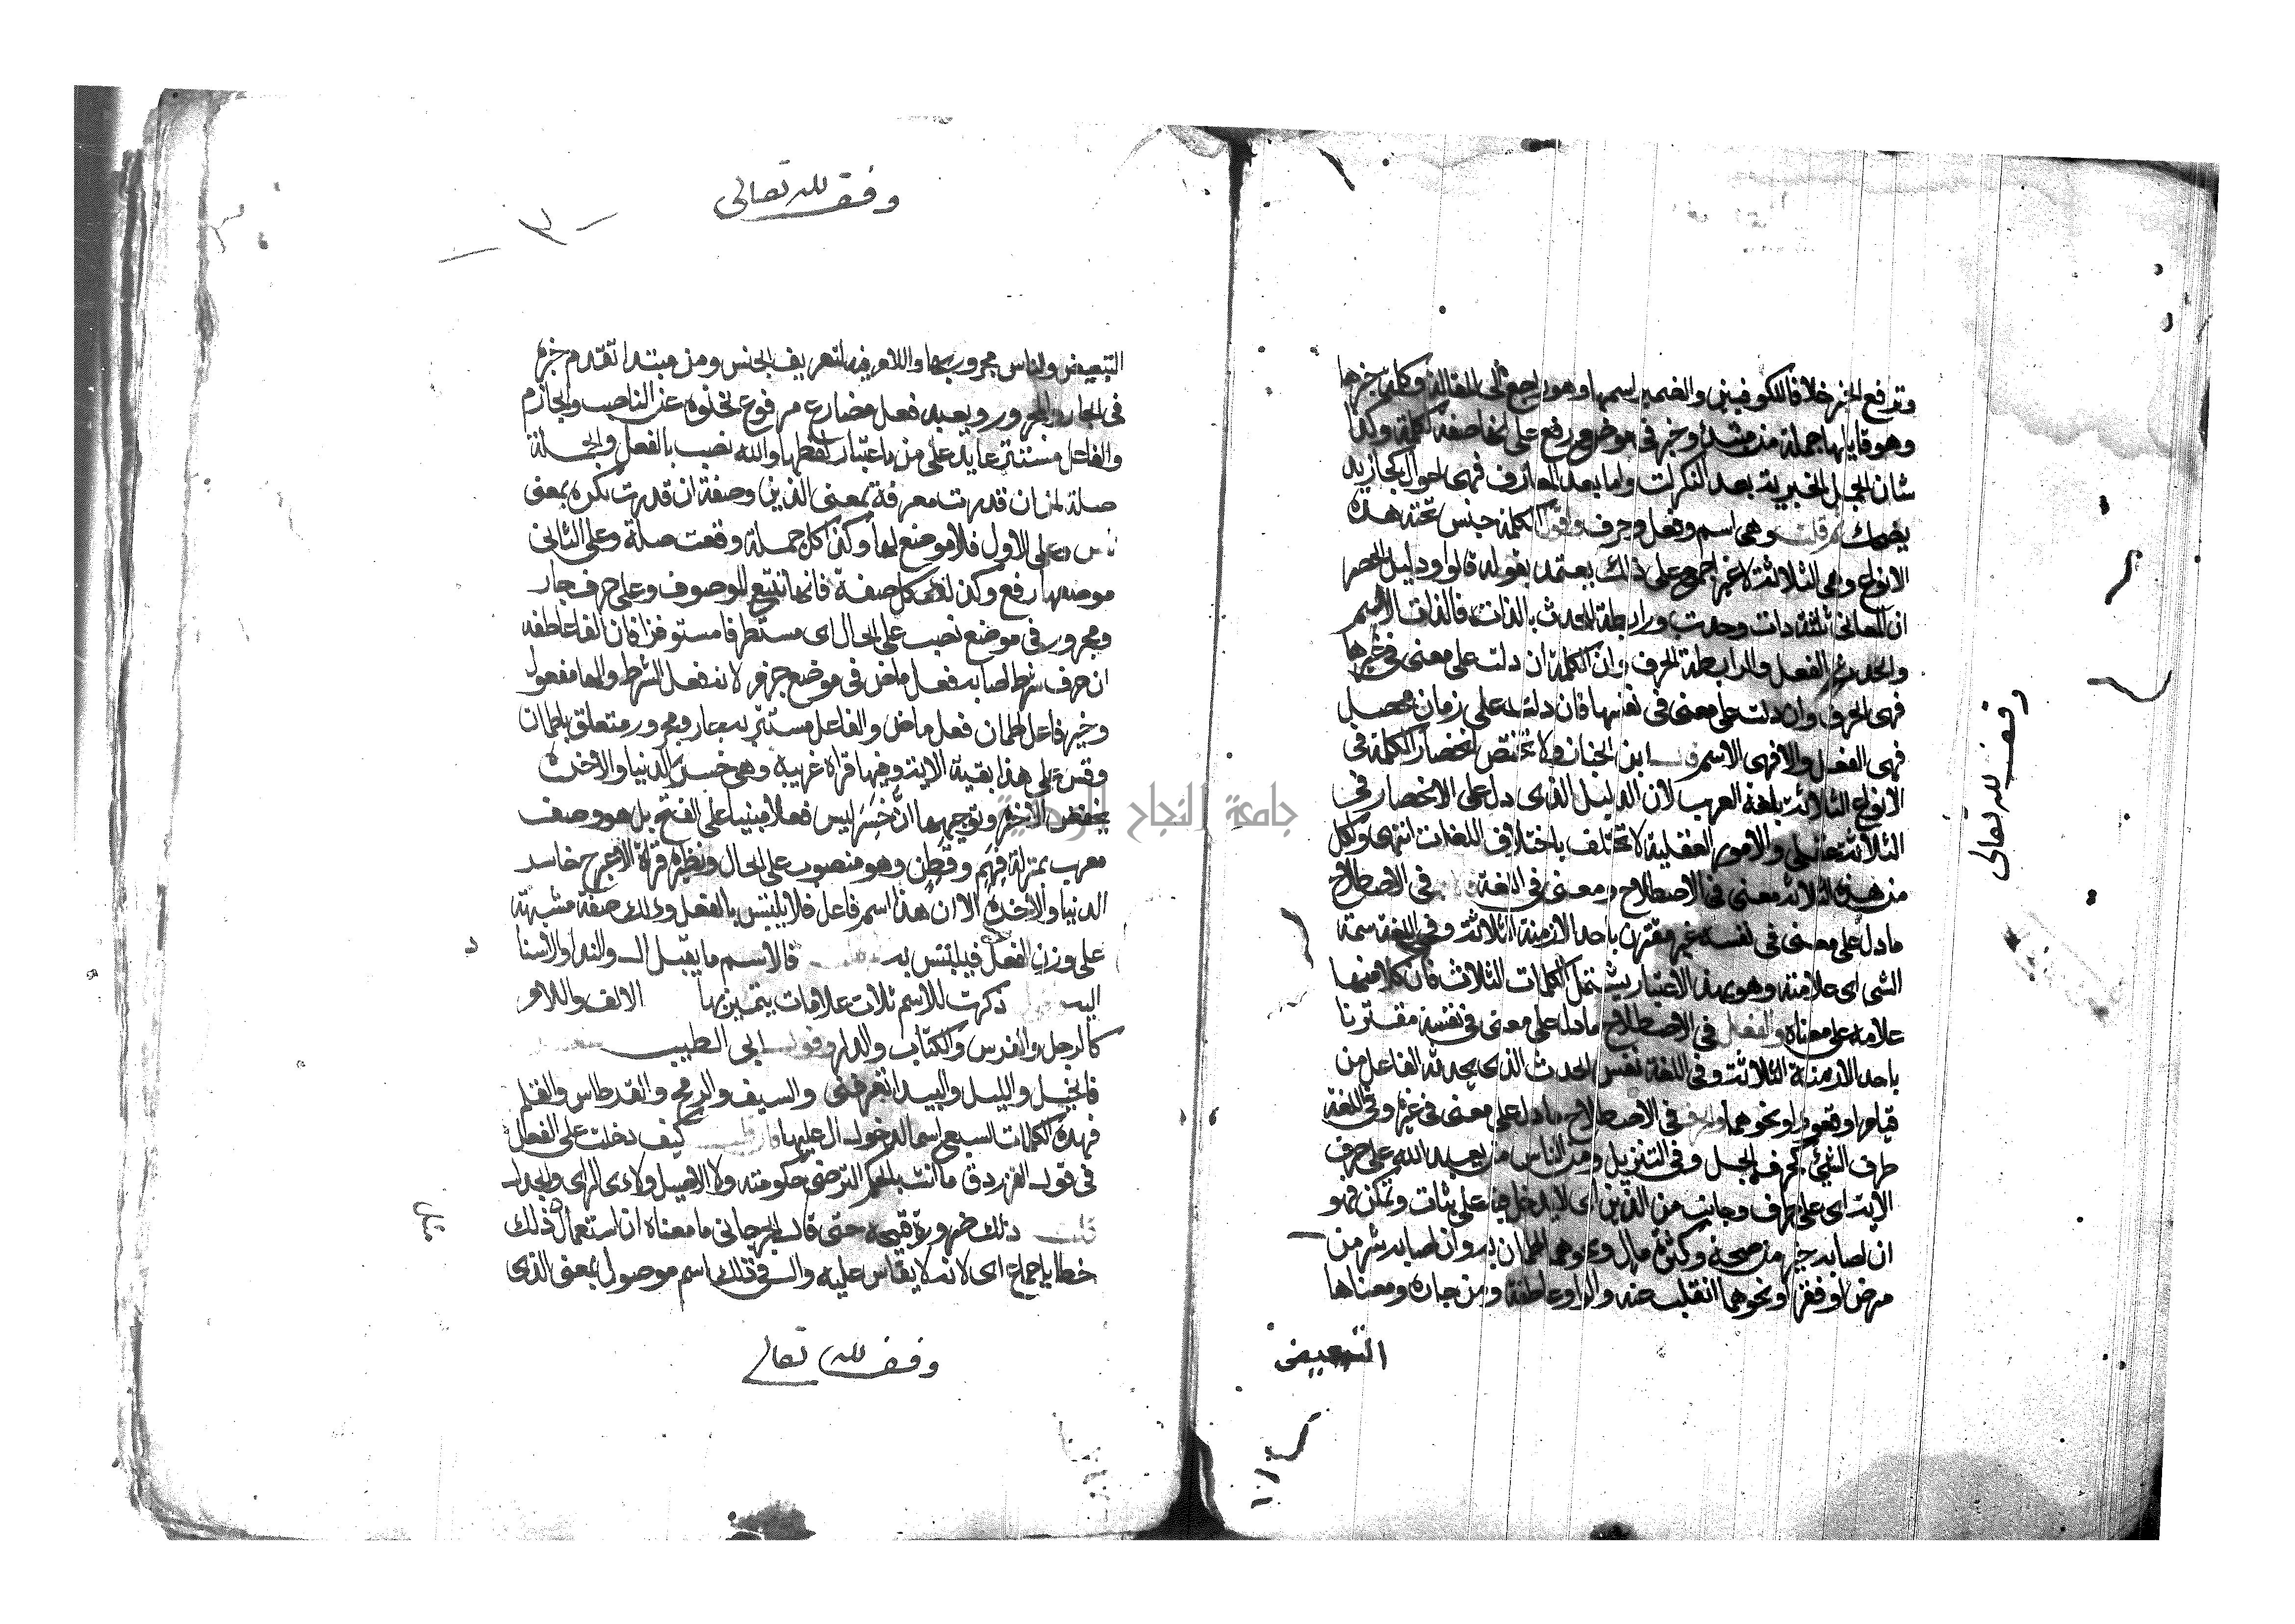 وترفع الخبر خلافا للكوفيين والضمير اسمها وهو راجع الى المقالة وكلمة خبرها
وهو قايلها جملة من مبتدا وخبر في موضع رفع على انها صفة لكلمة وكذا
شان الجمل الخبرية بعد النكرات واما بعد المعارف فهي احوال كجا زيد
يضحك ثم قلت وهي اسم وفعل وحرف واقول الكلمة جنس تحته هذه
الانواع وهي الثلاثة لا غير اجمع على ذلك يعتمد بقوله قالوا ودليل الحصر
ان المعاني ثلثة ذات وحدث ورابطة للحدث بالذات فالذات الاسم
والحدث الفعل والرابطة الحرف وان الكلمة ان دلت على معنى في غيرها
فهي الحرف وان دلت على معنى في نفسها فان دلت على زمان محصل
فهي الفعل والا فهي الاسم قال ابن الخباز ولا تختص انحصار الكلمة في
الانواع الثلاثة بلغة العرب لان الدليل الذي دل على الانحصار في
الثلاثة عقلي والامور العقلية لا تختلف باختلاف اللغات انتهى ولكل
من هذه الثلاثة معنى في الاصطلاح ومعنى في اللغة في الاصطلاح
ما دل على معنى في نفسه غير مقترن باحد الازمنة الثلاثة وفي اللغة سمة
الشي اي علامته وهو بهذا الاعتبار يشتمل الكلمات الثلاث فان كلا منها
علامة على معناه والفعل في الاصطلاح ما دل على معنى في نفسه مقترنا
باحد الازمنة الثلاثة وفي اللغة نفس الحدث الذي يحدثه الفاعل من
قيام او قعود او نحوهما والحرف في الاصطلاح ما دل على معنى في غيره وفي اللغة
طرف الشيئ كحرف الجبل وفي التنزيل ومن الناس من يعبد الله على حرف
الاية اي على طرف وجانب من الدين اي لا يدخل فيه على ثبات وتمكن فهو
ان اصابه خير من صحة وكثرة مال ونحوهما اطمان به وان اصابه شر من
مرض او فقر او نحوهما انقلب عنه والواو عاطفة ومن جارة ومعناها
التبعيض
وقف لله تعالى
وقف لله تعالى
التبعيض والناس مجرور بها واللام فيه لتعريف الجنس ومن مبتدا تقدم خبره
في الجار والمجرور ويعبد فعل مضارع مرفوع لخلوه عن الناصب والجازم
والفاعل مستتر عايد على من باعتبار لفظها والله نصب بالفعل والجملة
صلة لمن ان قدرت معرفة بمعنى الذين وصفة ان قدرت نكرة بمعنى
ناس وعلى الاول فلا موضع لها وكذا كل جملة وقعت صلة وعلى الثاني
موضعها رفع وكذا كل صفة فانها تتبع الموصوف وعلى حرف جار
ومجرور في موضع نصب على الحال اي مستطرفا مستوفزا فان الفا عاطفة
ان حرف شرط اصابه فعل ماض في موضع جزم لانه فعل الشرط والها مفعول
وخير فاعل اطمان فعل ماض والفاعل مستتر به جار ومجرور متعلق باطمان
وقس على هذا بقية الاية وفيها قراة غريبة وهي خسر الدنيا والاخرة
بخفض الاخرة وتوجيهها ان خسر ليس فعلا مبنيا على الفتح بل هو وصف
معرب بمنزلة فهم وفطن وهو منصوب على الحال ونظيره قراة الاعرج خاسر
الدنيا والاخرة الا ان هذا اسم فاعل فلا يلتبس بالفعل وذلك صفة مشبهة
على وزن الفعل فيلتبس به فالاسم ما يقبل ال والندا والاسنا
اليه ذكرت للاسم ثلاث علامات يتميز بها الالف واللام
كالرجل والفرس والكتاب والدار وقول ابي الطيب
فالخيل والليل والبيدا تعرفني والسيف والرمح والقرطاس والقلم
فهذه الكلمات السبع اسما لدخول ال عليها فان قلت كيف دخلت على الفعل
في قول الفرزدق ما انت بالحكم الترضى حكومته ولا الاصيل ولا ذي الراي والجدل
قلت ذلك ضرورة قبيحة حتى قال الجرجاني ما معناه ان استعمال ذلك
خطا باجماع اي لانه لا يقاس عليه وال في ذلك اسم موصول بمعنى الذي
وقف لله تعالى
جامعة النجاح الوطنية